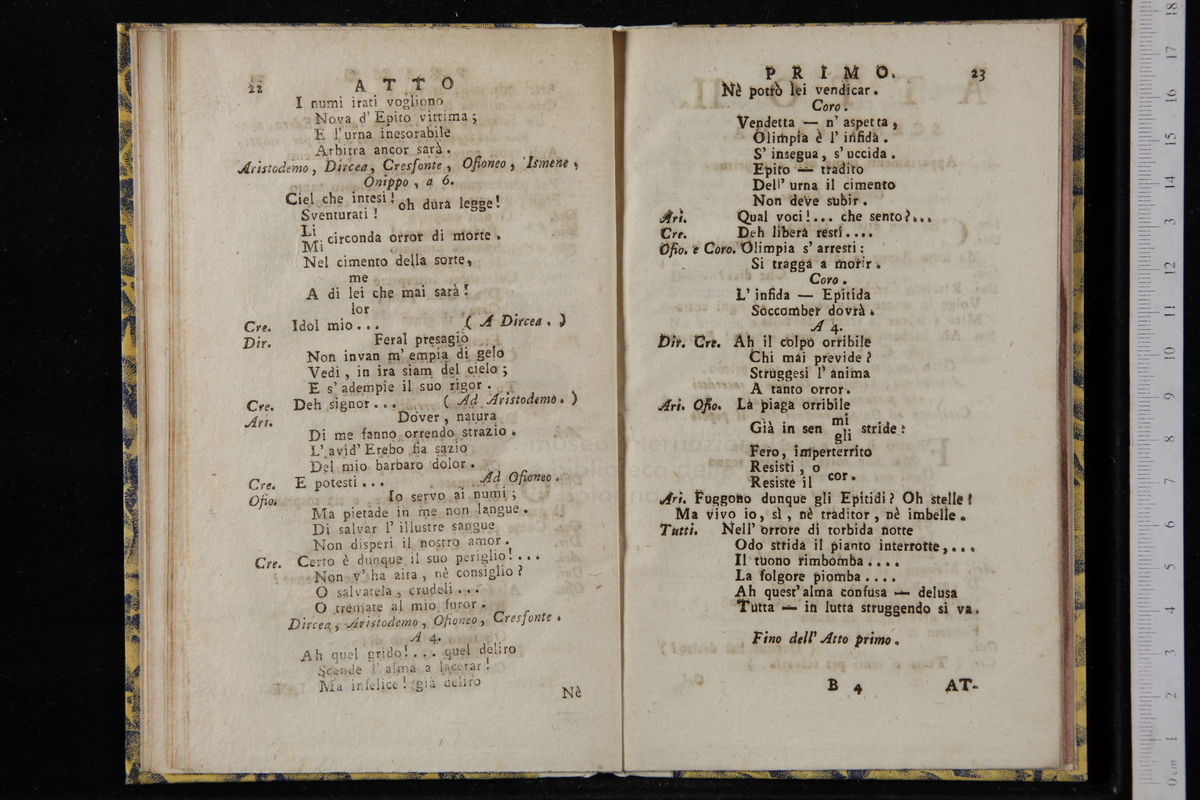 22 ATTO
I numi irati vogliono
Nova d' Epito vittima;
E l'urna inesorabile
Arbitra ancor sarà.
Aristodemo, Dircea, Cresfonte, Ofioneo, Ismene,
Onippo, a 6.
Ciel che intesi! oh dura legge!
Sventurati!
Li
Mi circonda orror di morte.
Nel cimento della sorte,
me
A di lei che mai sarà!
lor
Cre. Idol mio... ( A Dircea. )
Dir. Feral presagio
Non invan m' empia di gelo
Vedi, in ira siam del cielo;
E s' adempie il suo rigor.
Cre. Deh signor... ( Ad Aristodemo. )
Ari. Dover, natura
Di me fanno orrendo strazio.
L' avid' Erebo fia sazio
Del mio barbaro dolor.
Cre. E potesti... Ad Ofioneo.
Ofio. Io servo ai numi;
Ma pietade in me non langue.
Di salvar l' illustre sangue
Non disperi il nostro amor.
Cre. Certo è dunque il suo periglio!...
Non v' ha aita, nè consiglio?
O salvatela, crudeli...
O tremate al mio furor.
Dircea, Aristodemo, Ofioneo, Cresfonte.
A 4.
Ah quel grido!... quel deliro
Scende l' alma a lacerar!
Ma infelice! già deliro
Nè
PRIMO. 23
Nè potrò lei vendicar.
Coro.
Vendetta — n' aspetta,
Olimpia è l' infida.
S' insegua, s' uccida.
Epito — tradito
Dell' urna il cimento
Non deve subir.
Ari. Qual voci!... che sento?...
Cre. Deh libera resti....
Ofio. e Coro. Olimpia s' arresti:
Si tragga a morir.
Coro.
L' infida — Epitida
Soccomber dovrà.
A 4.
Dir. Cre. Ah il colpo orribile
Chi mai previde?
Struggesi l' anima
A tanto orror.
Ari. Ofio. La piaga orribile
mi
Già in sen gli stride:
Fero, imperterrito
Resisti, o
Resiste il cor.
Ari. Fuggono dunque gli Epitidi? Oh stelle!
Ma vivo io, sì, nè traditor, nè imbelle.
Tutti. Nell' orrore di torbida notte
Odo strida il pianto interrotte,...
Il tuono rimbomba....
La folgore piomba....
Ah quest' alma confusa — delusa
Tutta — in lutta struggendo si va.
Fino dell' Atto primo.
B 4 AT-